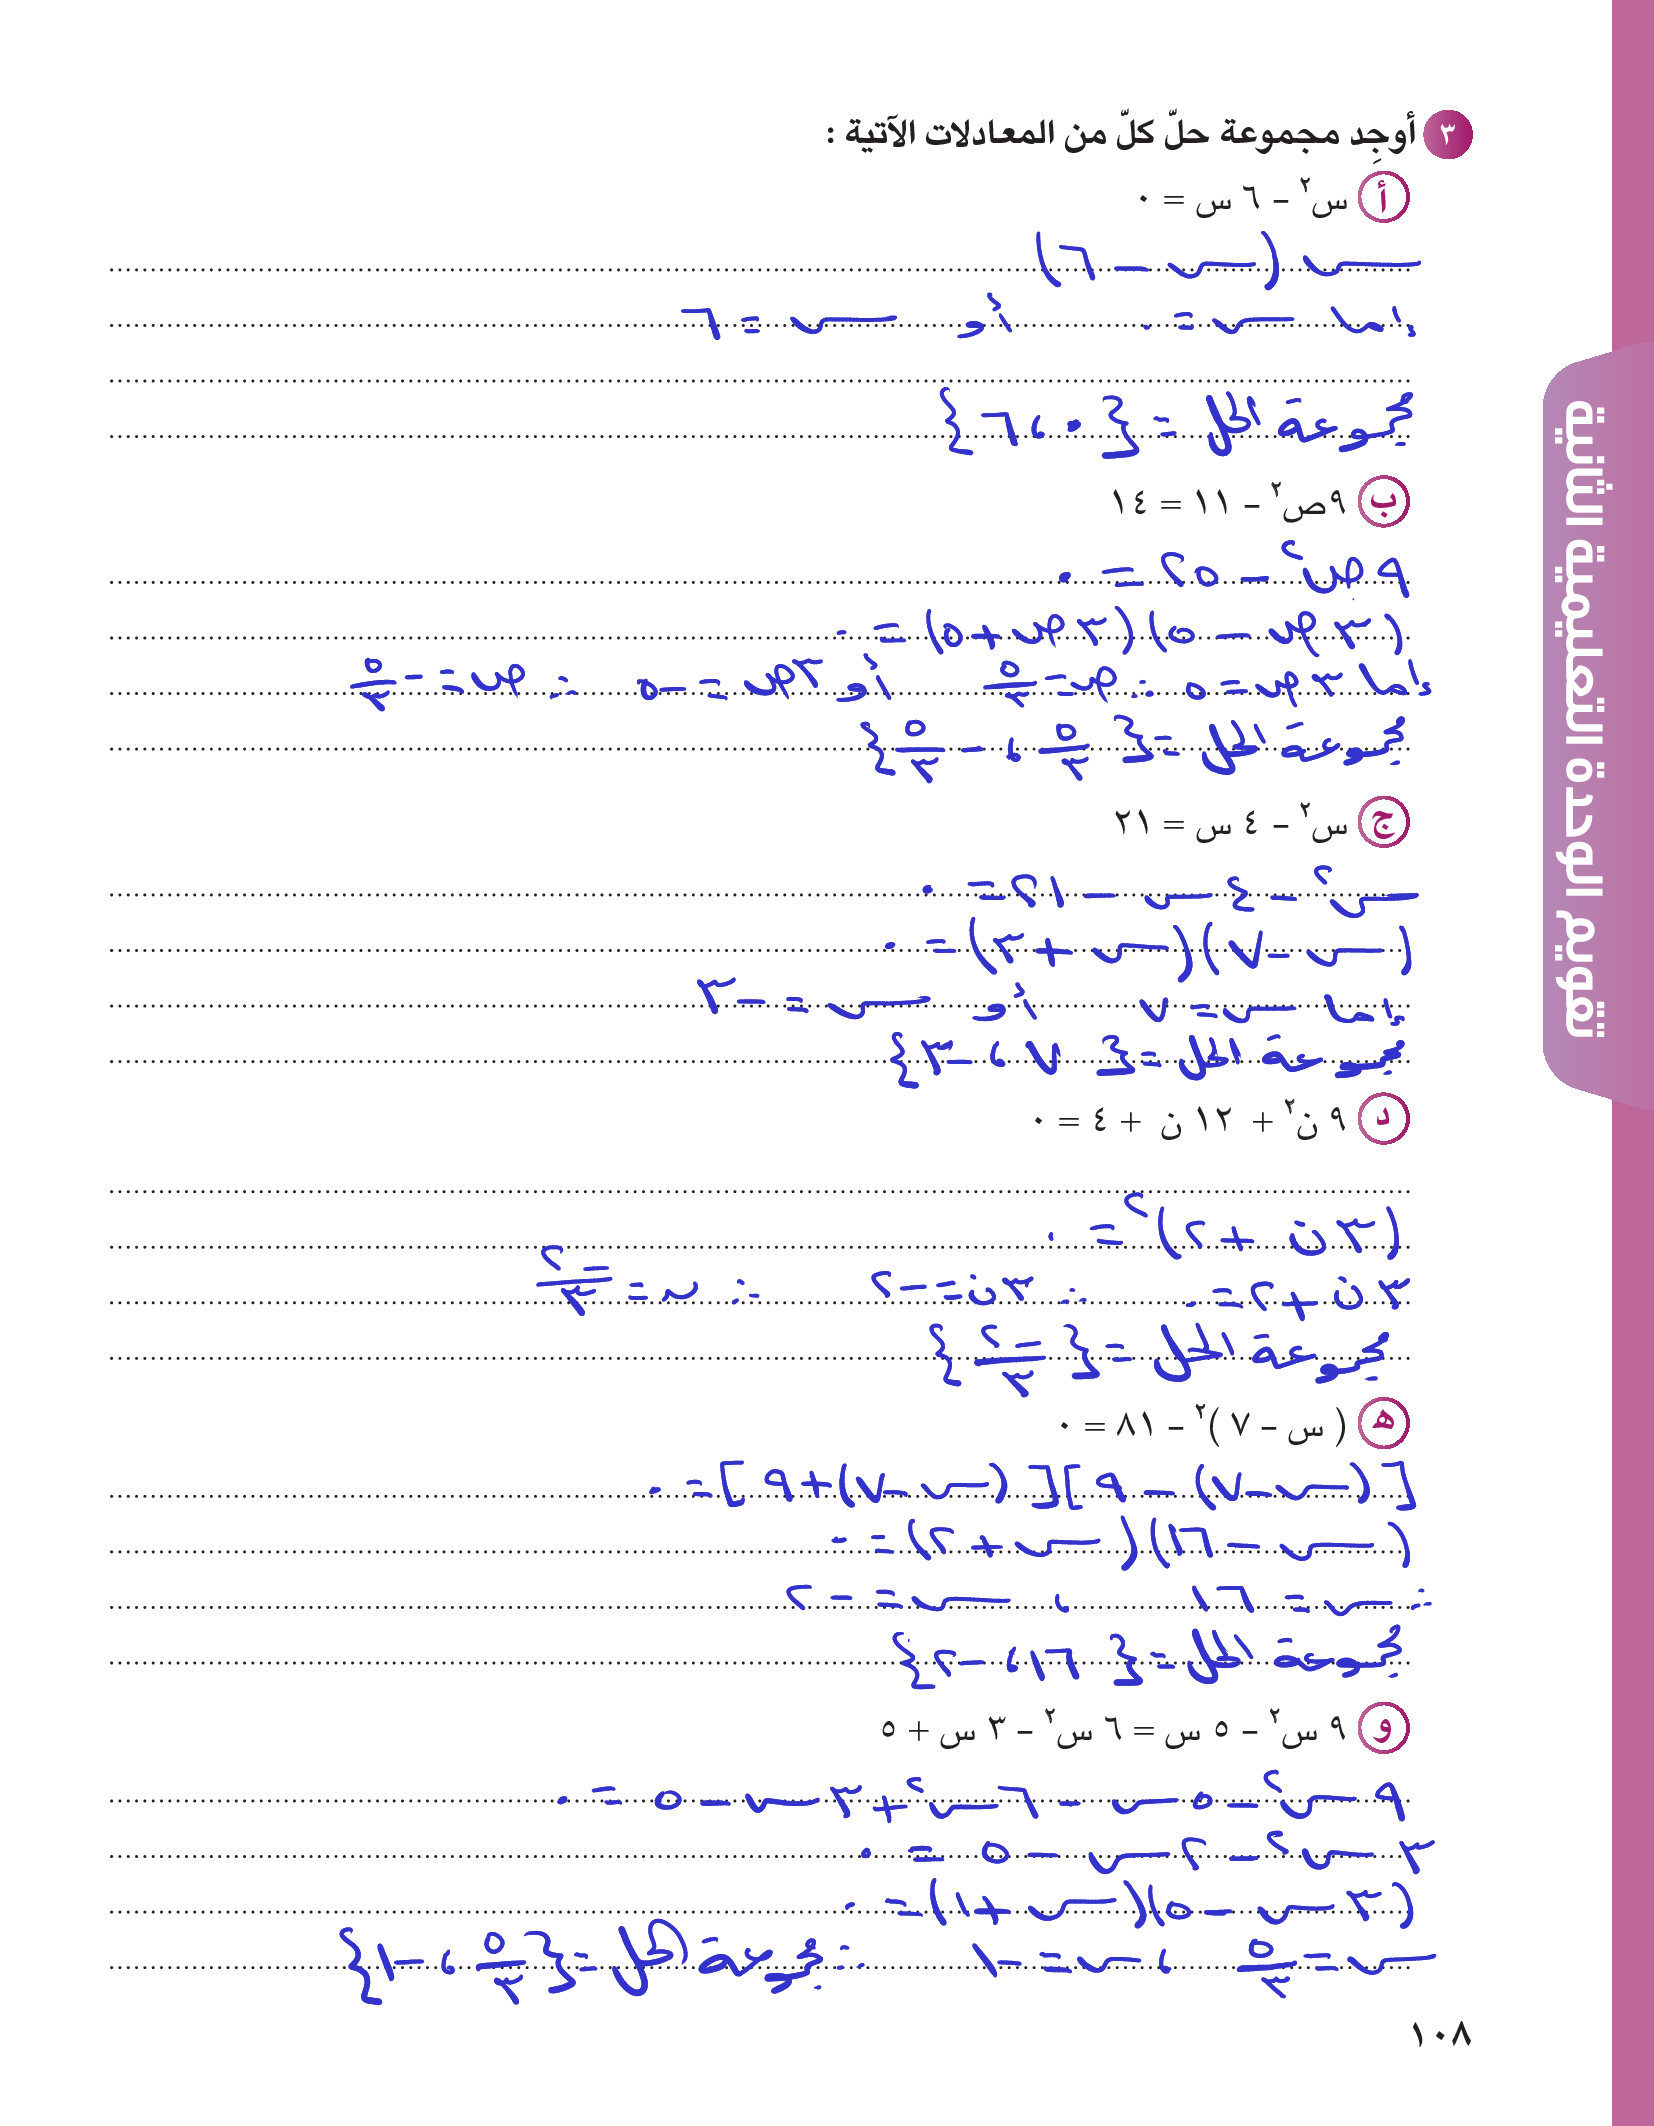 ٣ أوجِد مجموعة حلّ كلّ من المعادلات الآتية :
أ س٢ – ٦ س = ٠
س (س – ٦)
إما س = ٠ أو س = ٦
مجموعة الحل = {٠ ، ٦}
ب ٩ص٢ – ١١ = ١٤
٩ص٢ – ٢٥ = ٠
(٣ص – ٥)(٣ص + ٥) = ٠
إما ٣ص = ٥ ∴ ص = ٥/٣ أو ٣ص = –٥ ∴ ص = –٥/٣
مجموعة الحل = {٥/٣ ، –٥/٣}
ج س٢ – ٤ س = ٢١
س٢ – ٤ س – ٢١ = ٠
(س – ٧)(س + ٣) = ٠
إما س = ٧ أو س = –٣
مجموعة الحل = {٧ ، –٣}
د ٩ ن٢ + ١٢ ن + ٤ = ٠
(٣ن + ٢)٢ = ٠
٣ن + ٢ = ٠ ∴ ٣ن = –٢ ∴ ن = –٢/٣
مجموعة الحل = {–٢/٣}
هـ ( س – ٧ )٢ – ٨١ = ٠
[(س – ٧) – ٩][(س – ٧) + ٩] = ٠
(س – ١٦)(س + ٢) = ٠
∴ س = ١٦ ، س = –٢
مجموعة الحل = {١٦ ، –٢}
و ٩ س٢ – ٥ س = ٦ س٢ – ٣ س + ٥
٩ س٢ – ٥ س – ٦ س٢ + ٣ س – ٥ = ٠
٣ س٢ – ٢ س – ٥ = ٠
(٣ س – ٥)(س + ١) = ٠
س = ٥/٣ ، س = –١ ∴ مجموعة الحل = {٥/٣ ، –١}
تقويم الوحدة التعليمية الثانية
١٠٨